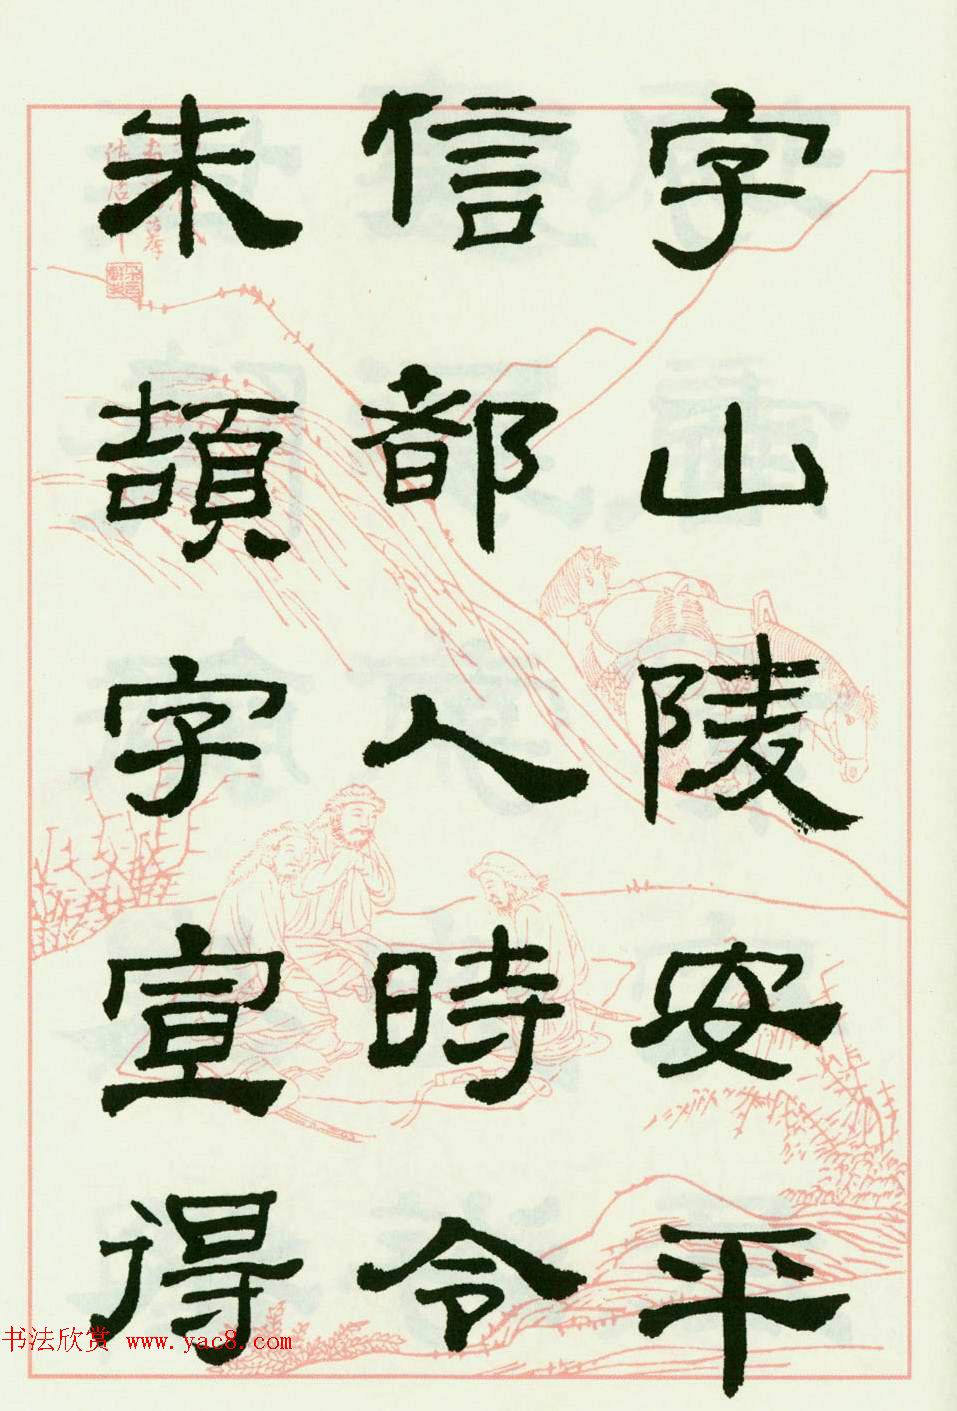 字山陵安平
信都人時令
朱頡字宣得
书法欣赏 www.yac8.com